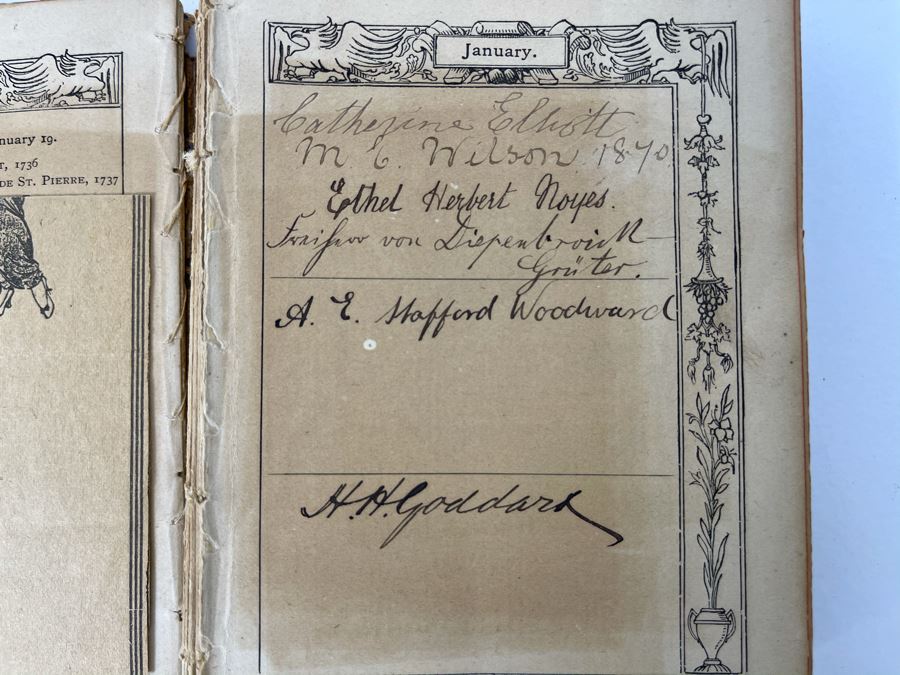 nuary 19.
T, 1736
DE ST. PIERRE, 1737
January.
Catherine Elliott
M E. Wilson 1870
Ethel Herbert Noyes.
Freiherr von Diepenbroick
Grüter.
A. E. Stafford Woodward
H. H. Goddard